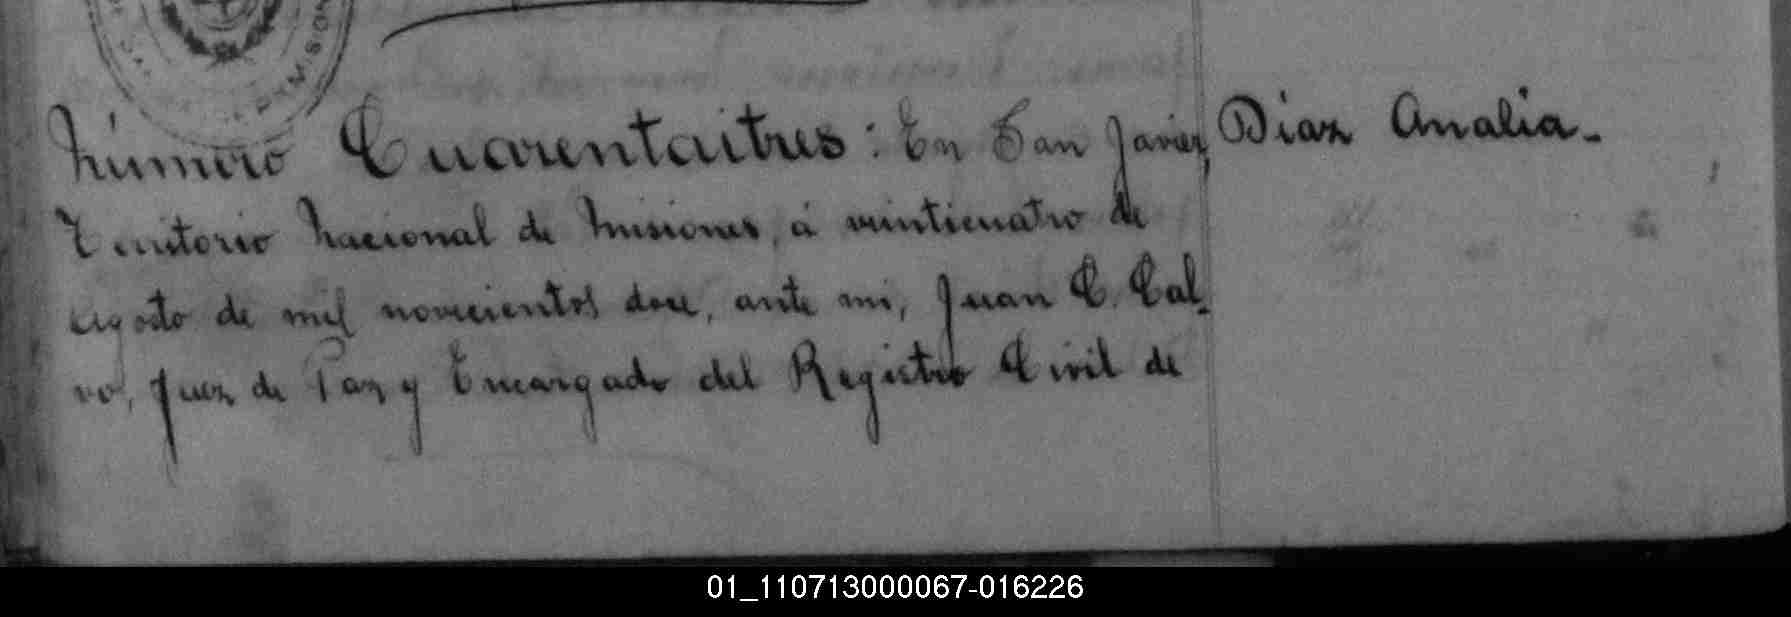 Número Cuarentaitres: En San Javier,
Territorio Nacional de Misiones, á veinticuatro de
Agosto de mil novecientos doce, ante mi, Juan C. Cal-
vo, Juez de Paz y Encargado del Registro Civil de
Diaz Analia.-
01_110713000067-016226